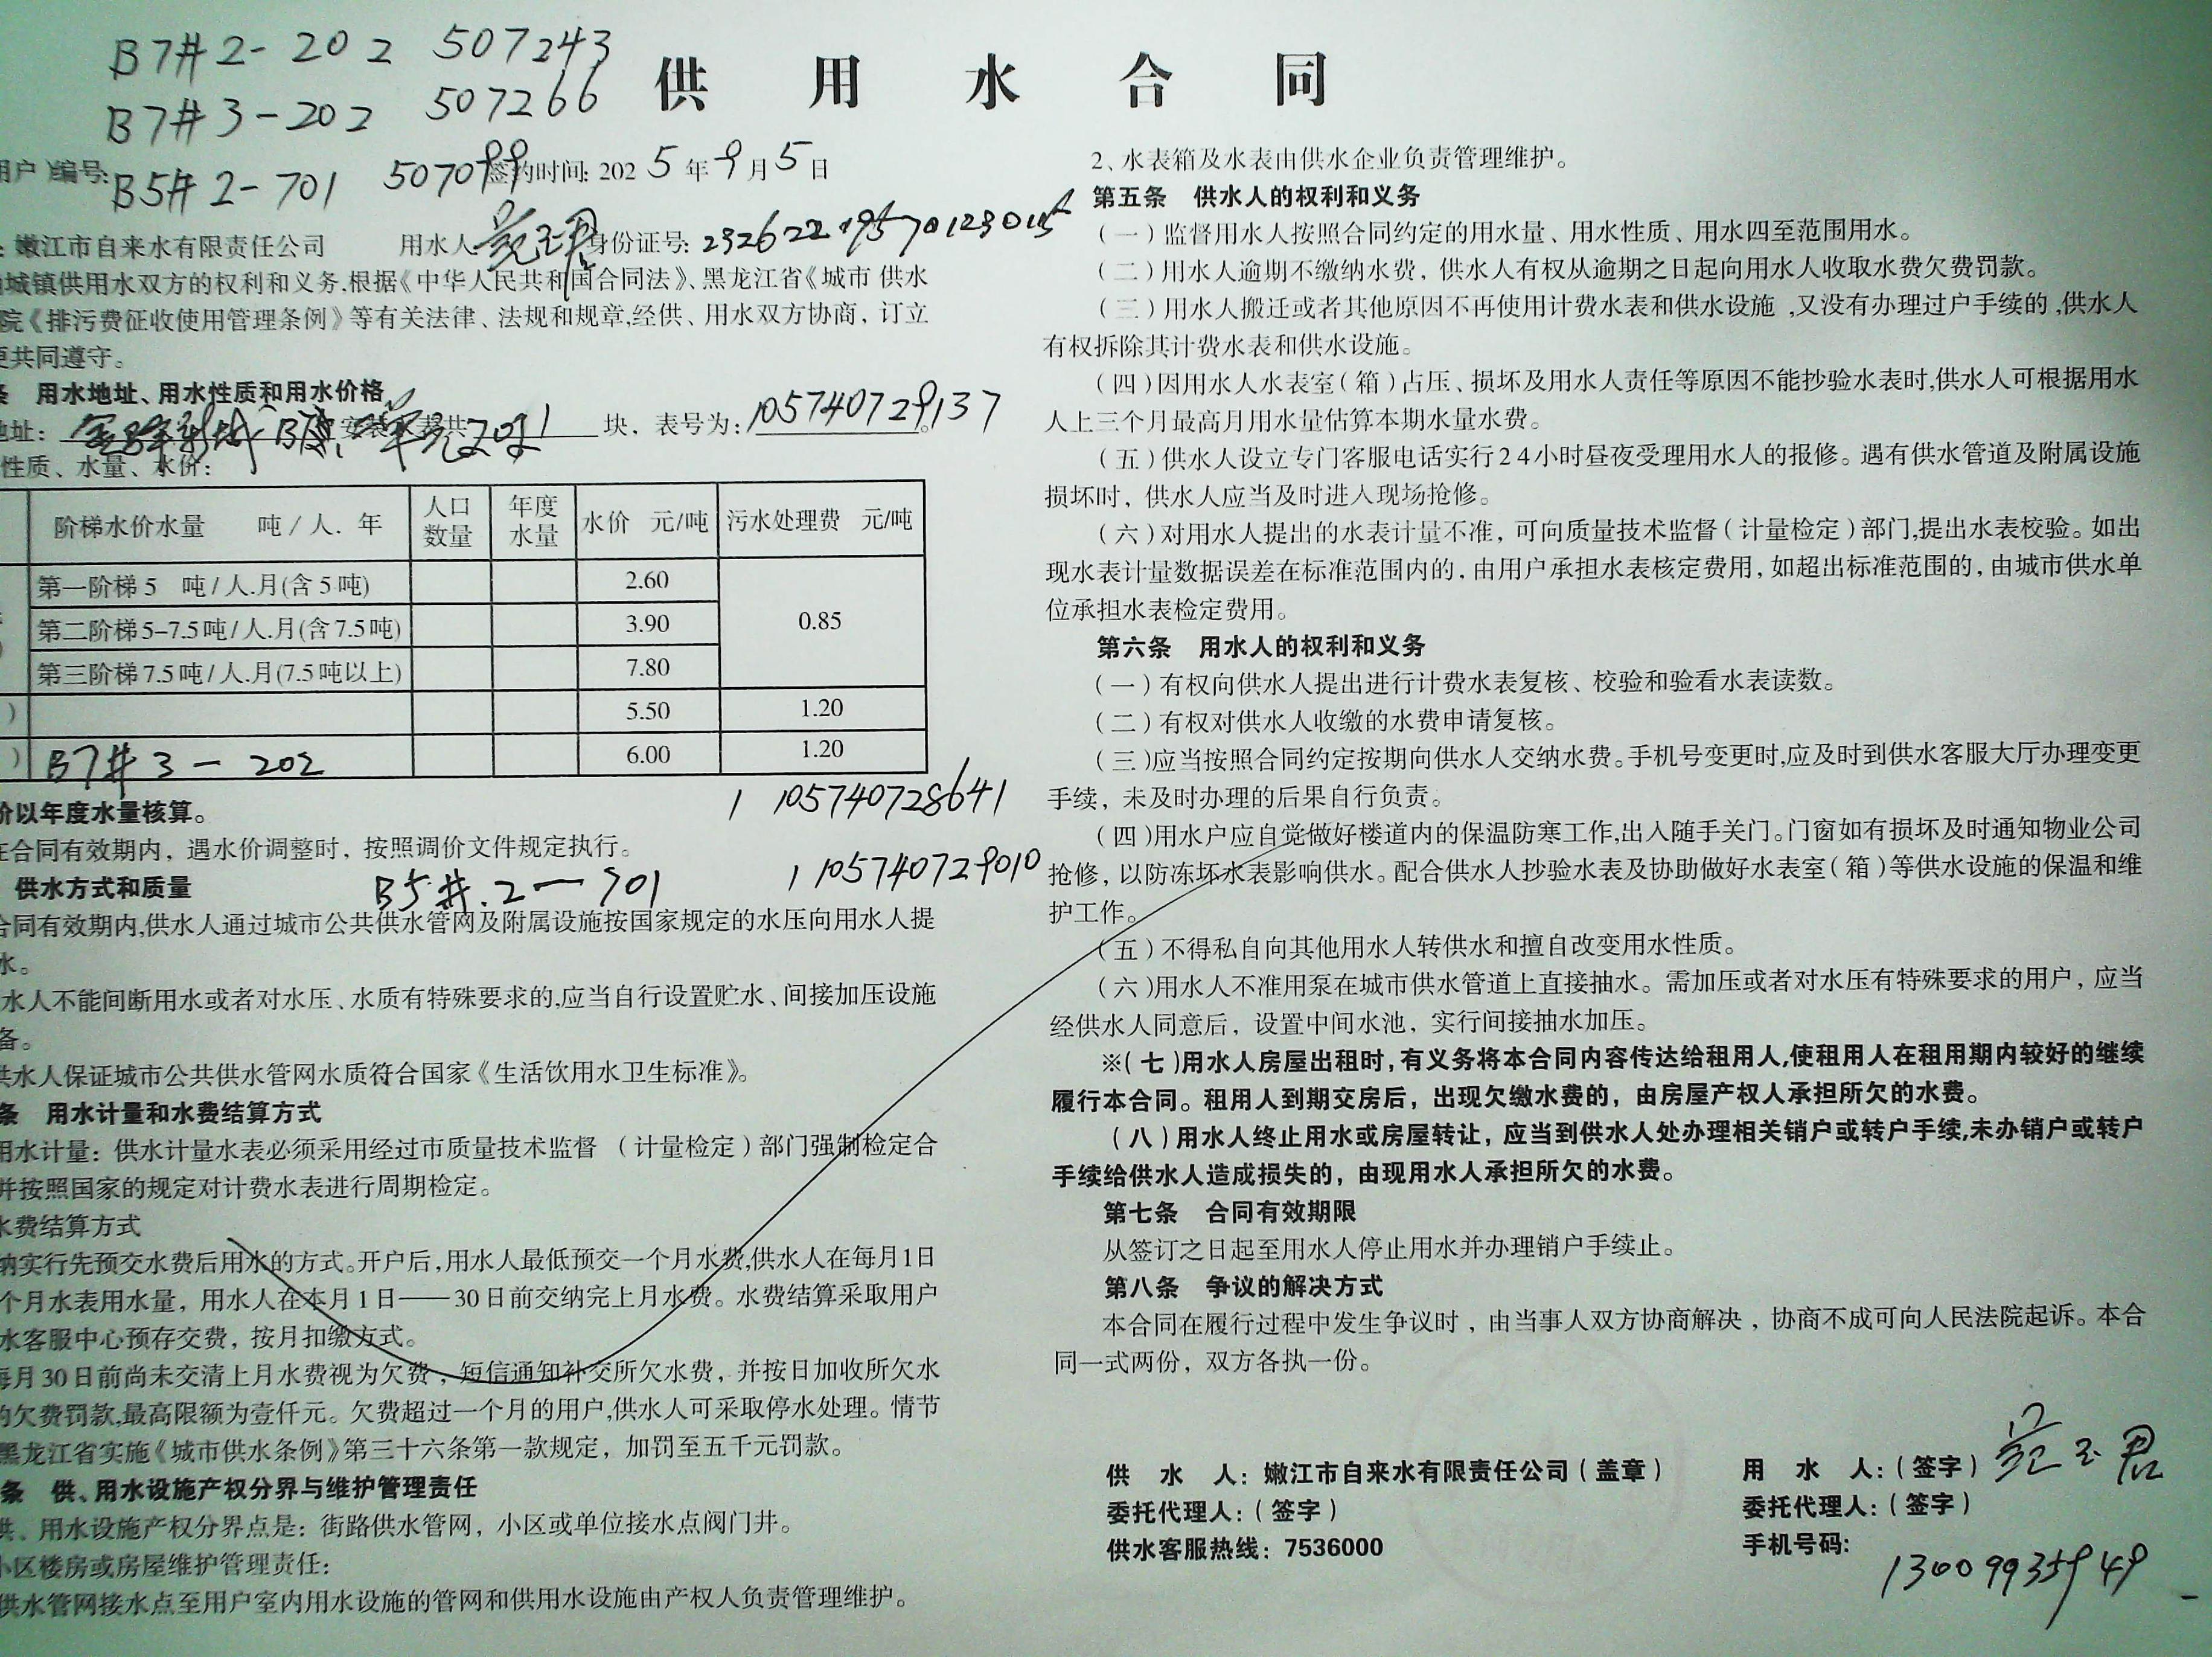 B7#2-202 507243
B7#3-202 507266
供用水合同
用户)编号: B5#2-701 507099 签约时间: 2025年9月5日
嫩江市自来水有限责任公司 用水人: 范玉君 身份证号:
城镇供用水双方的权利和义务.根据《中华人民共和国合同法》、黑龙江省《城市 供水
院《排污费征收使用管理条例》等有关法律、法规和规章,经供、用水双方协商, 订立
更共同遵守。
条 用水地址、用水性质和用水价格
地址: 安装水表共 1 块, 表号为: 105740729137。
性质、水量、水价:
阶梯水价水量 吨/人.年 人口数量 年度水量 水价 元/吨 污水处理费 元/吨
第一阶梯5 吨/人.月(含5吨) 2.60 0.85
第二阶梯5-7.5吨/人.月(含7.5吨) 3.90
第三阶梯7.5吨/人.月(7.5吨以上) 7.80
) 5.50 1.20
) B7#3-202 6.00 1.20
1 105740728641
价以年度水量核算。
在合同有效期内, 遇水价调整时, 按照调价文件规定执行。
供水方式和质量 B5#.2-701 1 105740729010
合同有效期内,供水人通过城市公共供水管网及附属设施按国家规定的水压向用水人提
水。
水人不能间断用水或者对水压、水质有特殊要求的,应当自行设置贮水、间接加压设施
备。
供水人保证城市公共供水管网水质符合国家《生活饮用水卫生标准》。
条 用水计量和水费结算方式
用水计量: 供水计量水表必须采用经过市质量技术监督 (计量检定)部门强制检定合
并按照国家的规定对计费水表进行周期检定。
水费结算方式
纳实行先预交水费后用水的方式。开户后,用水人最低预交一个月水费,供水人在每月1日
个月水表用水量, 用水人在本月1日——30日前交纳完上月水费。水费结算采取用户
水客服中心预存交费, 按月扣缴方式。
每月30日前尚未交清上月水费视为欠费, 短信通知补交所欠水费, 并按日加收所欠水
的欠费罚款,最高限额为壹仟元。欠费超过一个月的用户,供水人可采取停水处理。情节
黑龙江省实施《城市供水条例》第三十六条第一款规定, 加罚至五千元罚款。
条 供、用水设施产权分界与维护管理责任
供、用水设施产权分界点是: 街路供水管网, 小区或单位接水点阀门井。
小区楼房或房屋维护管理责任:
供水管网接水点至用户室内用水设施的管网和供用水设施由产权人负责管理维护。
2、水表箱及水表由供水企业负责管理维护。
第五条 供水人的权利和义务
(一)监督用水人按照合同约定的用水量、用水性质、用水四至范围用水。
(二)用水人逾期不缴纳水费, 供水人有权从逾期之日起向用水人收取水费欠费罚款。
(三)用水人搬迁或者其他原因不再使用计费水表和供水设施 ,又没有办理过户手续的,供水人
有权拆除其计费水表和供水设施。
(四)因用水人水表室(箱)占压、损坏及用水人责任等原因不能抄验水表时,供水人可根据用水
人上三个月最高月用水量估算本期水量水费。
(五)供水人设立专门客服电话实行24小时昼夜受理用水人的报修。遇有供水管道及附属设施
损坏时, 供水人应当及时进入现场抢修。
(六)对用水人提出的水表计量不准, 可向质量技术监督(计量检定)部门,提出水表校验。如出
现水表计量数据误差在标准范围内的, 由用户承担水表核定费用, 如超出标准范围的, 由城市供水单
位承担水表检定费用。
第六条 用水人的权利和义务
(一)有权向供水人提出进行计费水表复核、校验和验看水表读数。
(二)有权对供水人收缴的水费申请复核。
(三)应当按照合同约定按期向供水人交纳水费。手机号变更时,应及时到供水客服大厅办理变更
手续, 未及时办理的后果自行负责。
(四)用水户应自觉做好楼道内的保温防寒工作,出入随手关门。门窗如有损坏及时通知物业公司
抢修, 以防冻坏水表影响供水。配合供水人抄验水表及协助做好水表室(箱)等供水设施的保温和维
护工作。
(五)不得私自向其他用水人转供水和擅自改变用水性质。
(六)用水人不准用泵在城市供水管道上直接抽水。需加压或者对水压有特殊要求的用户, 应当
经供水人同意后, 设置中间水池, 实行间接抽水加压。
※(七)用水人房屋出租时, 有义务将本合同内容传达给租用人,使租用人在租用期内较好的继续
履行本合同。租用人到期交房后, 出现欠缴水费的, 由房屋产权人承担所欠的水费。
(八)用水人终止用水或房屋转让, 应当到供水人处办理相关销户或转户手续,未办销户或转户
手续给供水人造成损失的, 由现用水人承担所欠的水费。
第七条 合同有效期限
从签订之日起至用水人停止用水并办理销户手续止。
第八条 争议的解决方式
本合同在履行过程中发生争议时, 由当事人双方协商解决, 协商不成可向人民法院起诉。本合
同一式两份, 双方各执一份。
供水人: 嫩江市自来水有限责任公司(盖章)
委托代理人:(签字)
供水客服热线: 7536000
用水人:(签字) 范玉君
委托代理人:(签字)
手机号码: 13009935949